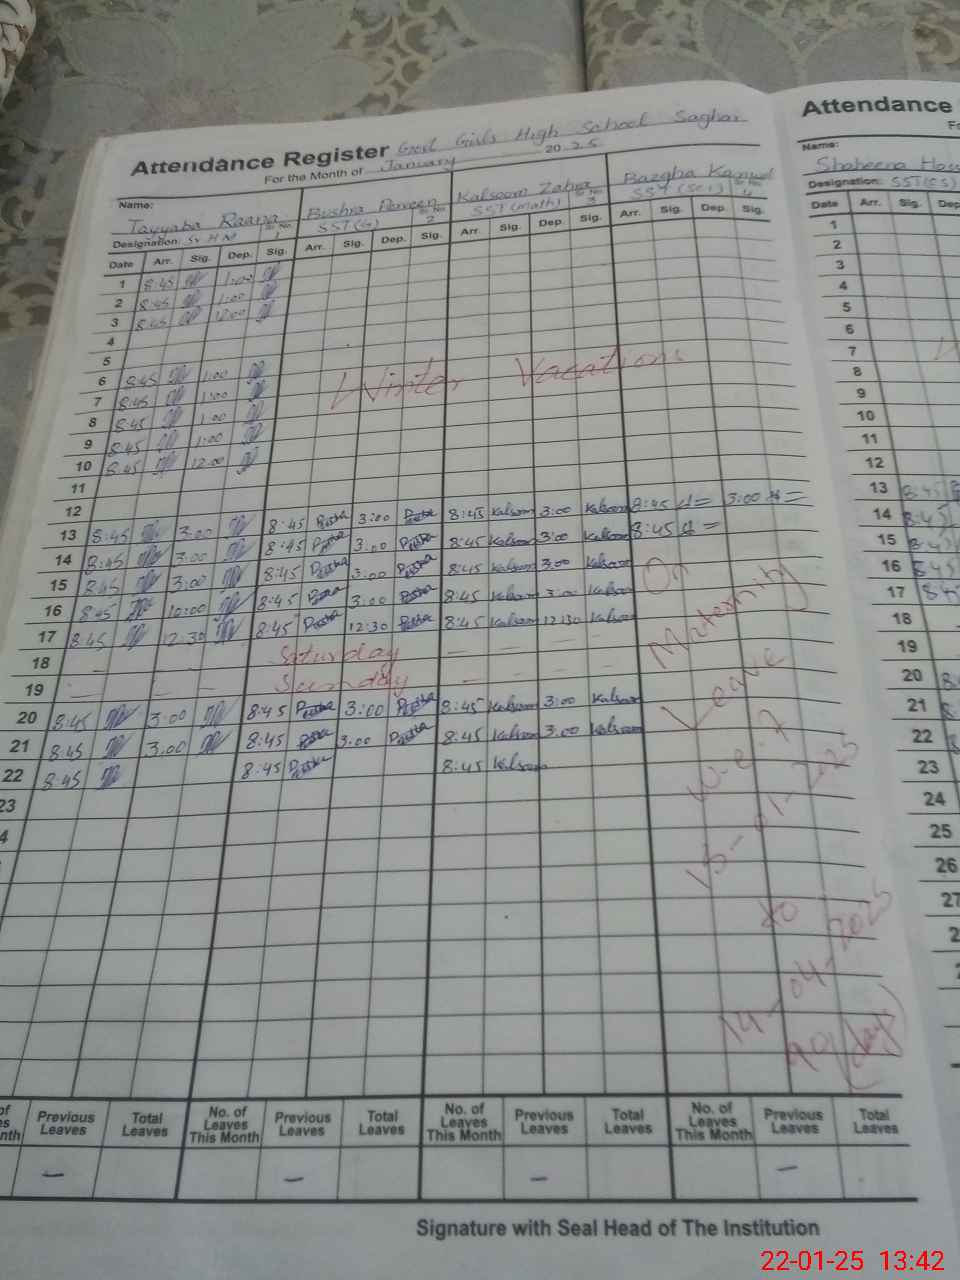 Attendance Register Govt Girls High School Saghar
For the Month of January 2025
Name: Tayyaba Raana Sr No. 1 Bushra Parveen Sr No. 2 Kalsoom Zahra Sr No. 3 Bazgha Kanwal Sr No. 4
Designation: Sr H M SST (G) SST (Math) SST (Sci)
Date Arr. Sig. Dep. Sig. Arr. Sig. Dep. Sig. Arr. Sig. Dep. Sig. Arr. Sig. Dep. Sig.
1 8:45 1:00
2 8:45 1:00
3 8:45 12:00
4
5
6 8:45 1:00
Winter Vacations
7 8:45 1:00
8 8:45 1:00
9 8:45 1:00
10 8:45 12:00
11
12
13 8:45 3:00 8:45 3:00 8:45 Kalsoom 3:00 Kalsoom 8:45 3:00
14 8:45 3:00 8:45 3:00 8:45 Kalsoom 3:00 Kalsoom 8:45
15 8:45 3:00 8:45 3:00 8:45 Kalsoom 3:00 Kalsoom
16 8:45 10:00 8:45 3:00 8:45 Kalsoom 3:00 Kalsoom
17 8:45 12:30 8:45 12:30 8:45 Kalsoom 12:30 Kalsoom
18 – – – Saturday – – – –
19 – – – Sunday – – – –
20 8:45 3:00 8:45 3:00 8:45 Kalsoom 3:00 Kalsoom
21 8:45 3:00 8:45 3:00 8:45 Kalsoom 3:00 Kalsoom
22 8:45 8:45 8:45 Kalsoom
23
4
On
Maternity
Leave
w.e.f
15-01-2025
to
14-04-2025
90 (days)
of
es
nth
Previous Leaves Total Leaves No. of Leaves This Month Previous Leaves Total Leaves No. of Leaves This Month Previous Leaves Total Leaves No. of Leaves This Month Previous Leaves Total Leaves
– – – –
Signature with Seal Head of The Institution
Attendance
Name:
Shaheena
Designation: SST(CS)
Date Arr. Sig. Dep
1
2
3
4
5
6
7
8
9
10
11
12
13 8:45
14 8:45
15 8:45
16 8:45
17
18
19
20
21
22
23
24
25
26
27
22-01-25 13:42